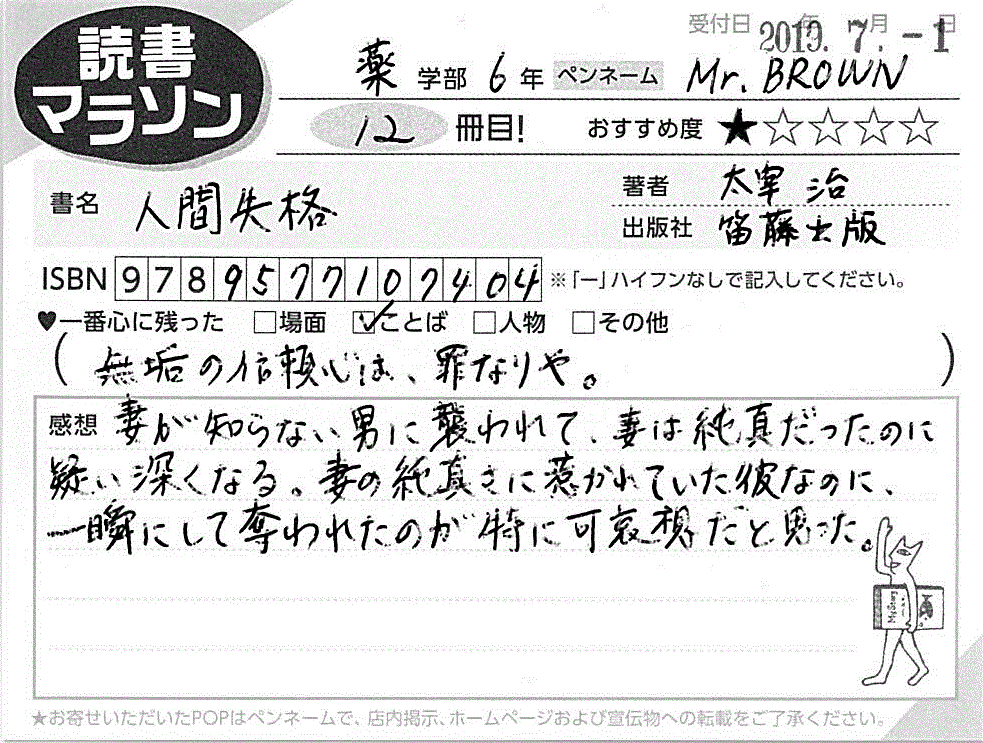 読書
マラソン
受付日 年 月 日
2019. 7. -1
薬 学部 6 年 ペンネーム Mr. BROWN
12 冊目! おすすめ度 ★☆☆☆☆
書名 人間失格
著者 太宰 治
出版社 笛藤出版
ISBN 9789577107404 ※「ー」ハイフンなしで記入してください。
♥一番心に残った □場面 ☑ことば □人物 □その他
(無垢の信頼心は、罪なりや。)
感想 妻が知らない男に襲われて、妻は純真だったのに
疑い深くなる。妻の純真さに惹かれていた彼なのに、
一瞬にして奪われたのが特に可哀想だと思った。
★お寄せいただいたPOPはペンネームで、店内掲示、ホームページおよび宣伝物への転載をご了承ください。